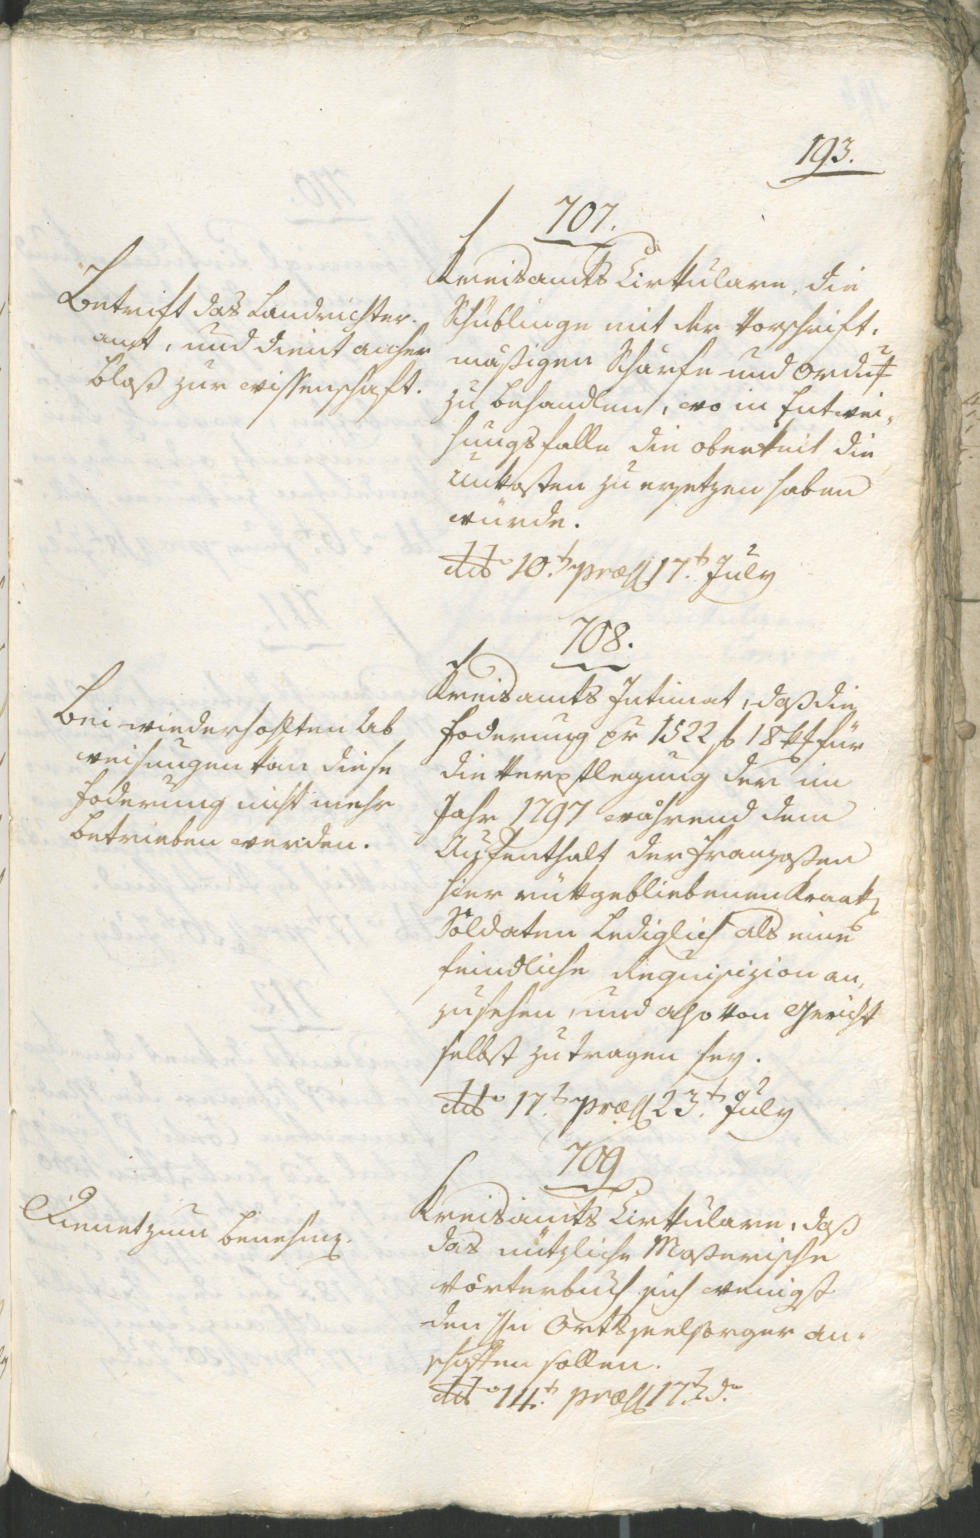 193.
707.
Kreisamts Cirkulare, die
Schüblinge mit der Vorschrift-
mäßigen Schärfe und Ordnung
zu behandlen, wo in Entwei-
hungsfalle die oberkeit die
Unkosten zu ersetzen haben
würde.
ddo 10.t præss 17.t July
Betrift das Landrichter-
amt, und dient anher
bloß zur wissenschaft.
708.
Kreisamts Intimat, daß die
Foderung pr 1522 f 18 xr für
die Verpflegung der im
Jahr 1797 während dem
Aufenthalt der Franzosen
hier rükgebliebenen Kranken
Soldaten Lediglich als eine
feindliche Requisizion an-
zusehen, und also von Gericht
selbst zu tragen sey.
ddo 17.t præss 23.t July
Bei wiederhohlten Ab
weisungen kan diese
Foderung nicht mehr
betrieben werden.
709
Kreisamts Cirkulare, daß
das nützliche Moserische
Wörterbuch sich wenigst
den Hn Ortsseelsorger an-
schaffen sollen.
ddo 14.t præss 17.t do
Dienet zum Benehmen.